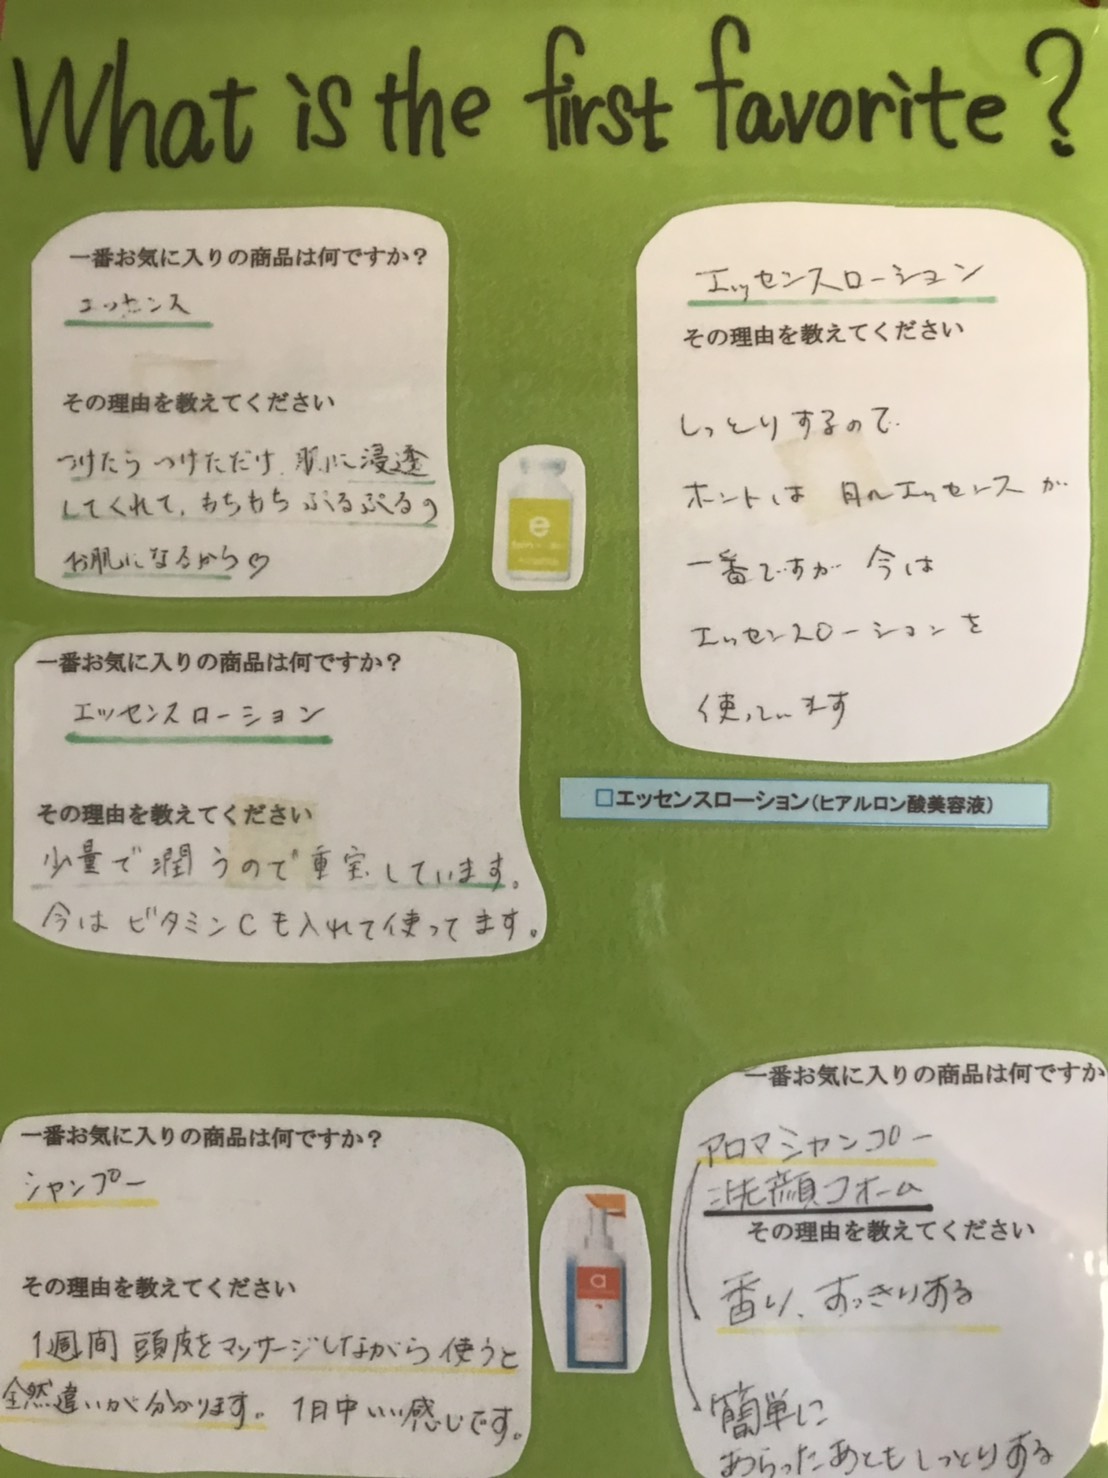 What is the first favorite?
一番お気に入りの商品は何ですか?
エッセンス
その理由を教えてください
つけたら つけただけ、肌に浸透
してくれて、もちもち ぷるぷるの
お肌になるから♡
エッセンスローション
その理由を教えてください
しっとりするので
ホントは 月ルエッセンスが
一番ですが 今は
エッセンスローションを
使っています
e
一番お気に入りの商品は何ですか?
エッセンスローション
その理由を教えてください
少量で潤うので重宝しています。
今は ビタミンCも入れて使ってます。
□エッセンスローション(ヒアルロン酸美容液)
一番お気に入りの商品は何ですか?
シャンプー
その理由を教えてください
1週間 頭皮をマッサージしながら使うと
全然違いが分かります。 1日中いい感じです。
a
一番お気に入りの商品は何ですか
アロマシャンプー
洗顔フォーム
その理由を教えてください
香り、すっきりする
簡単に
あらったあともしっとりする